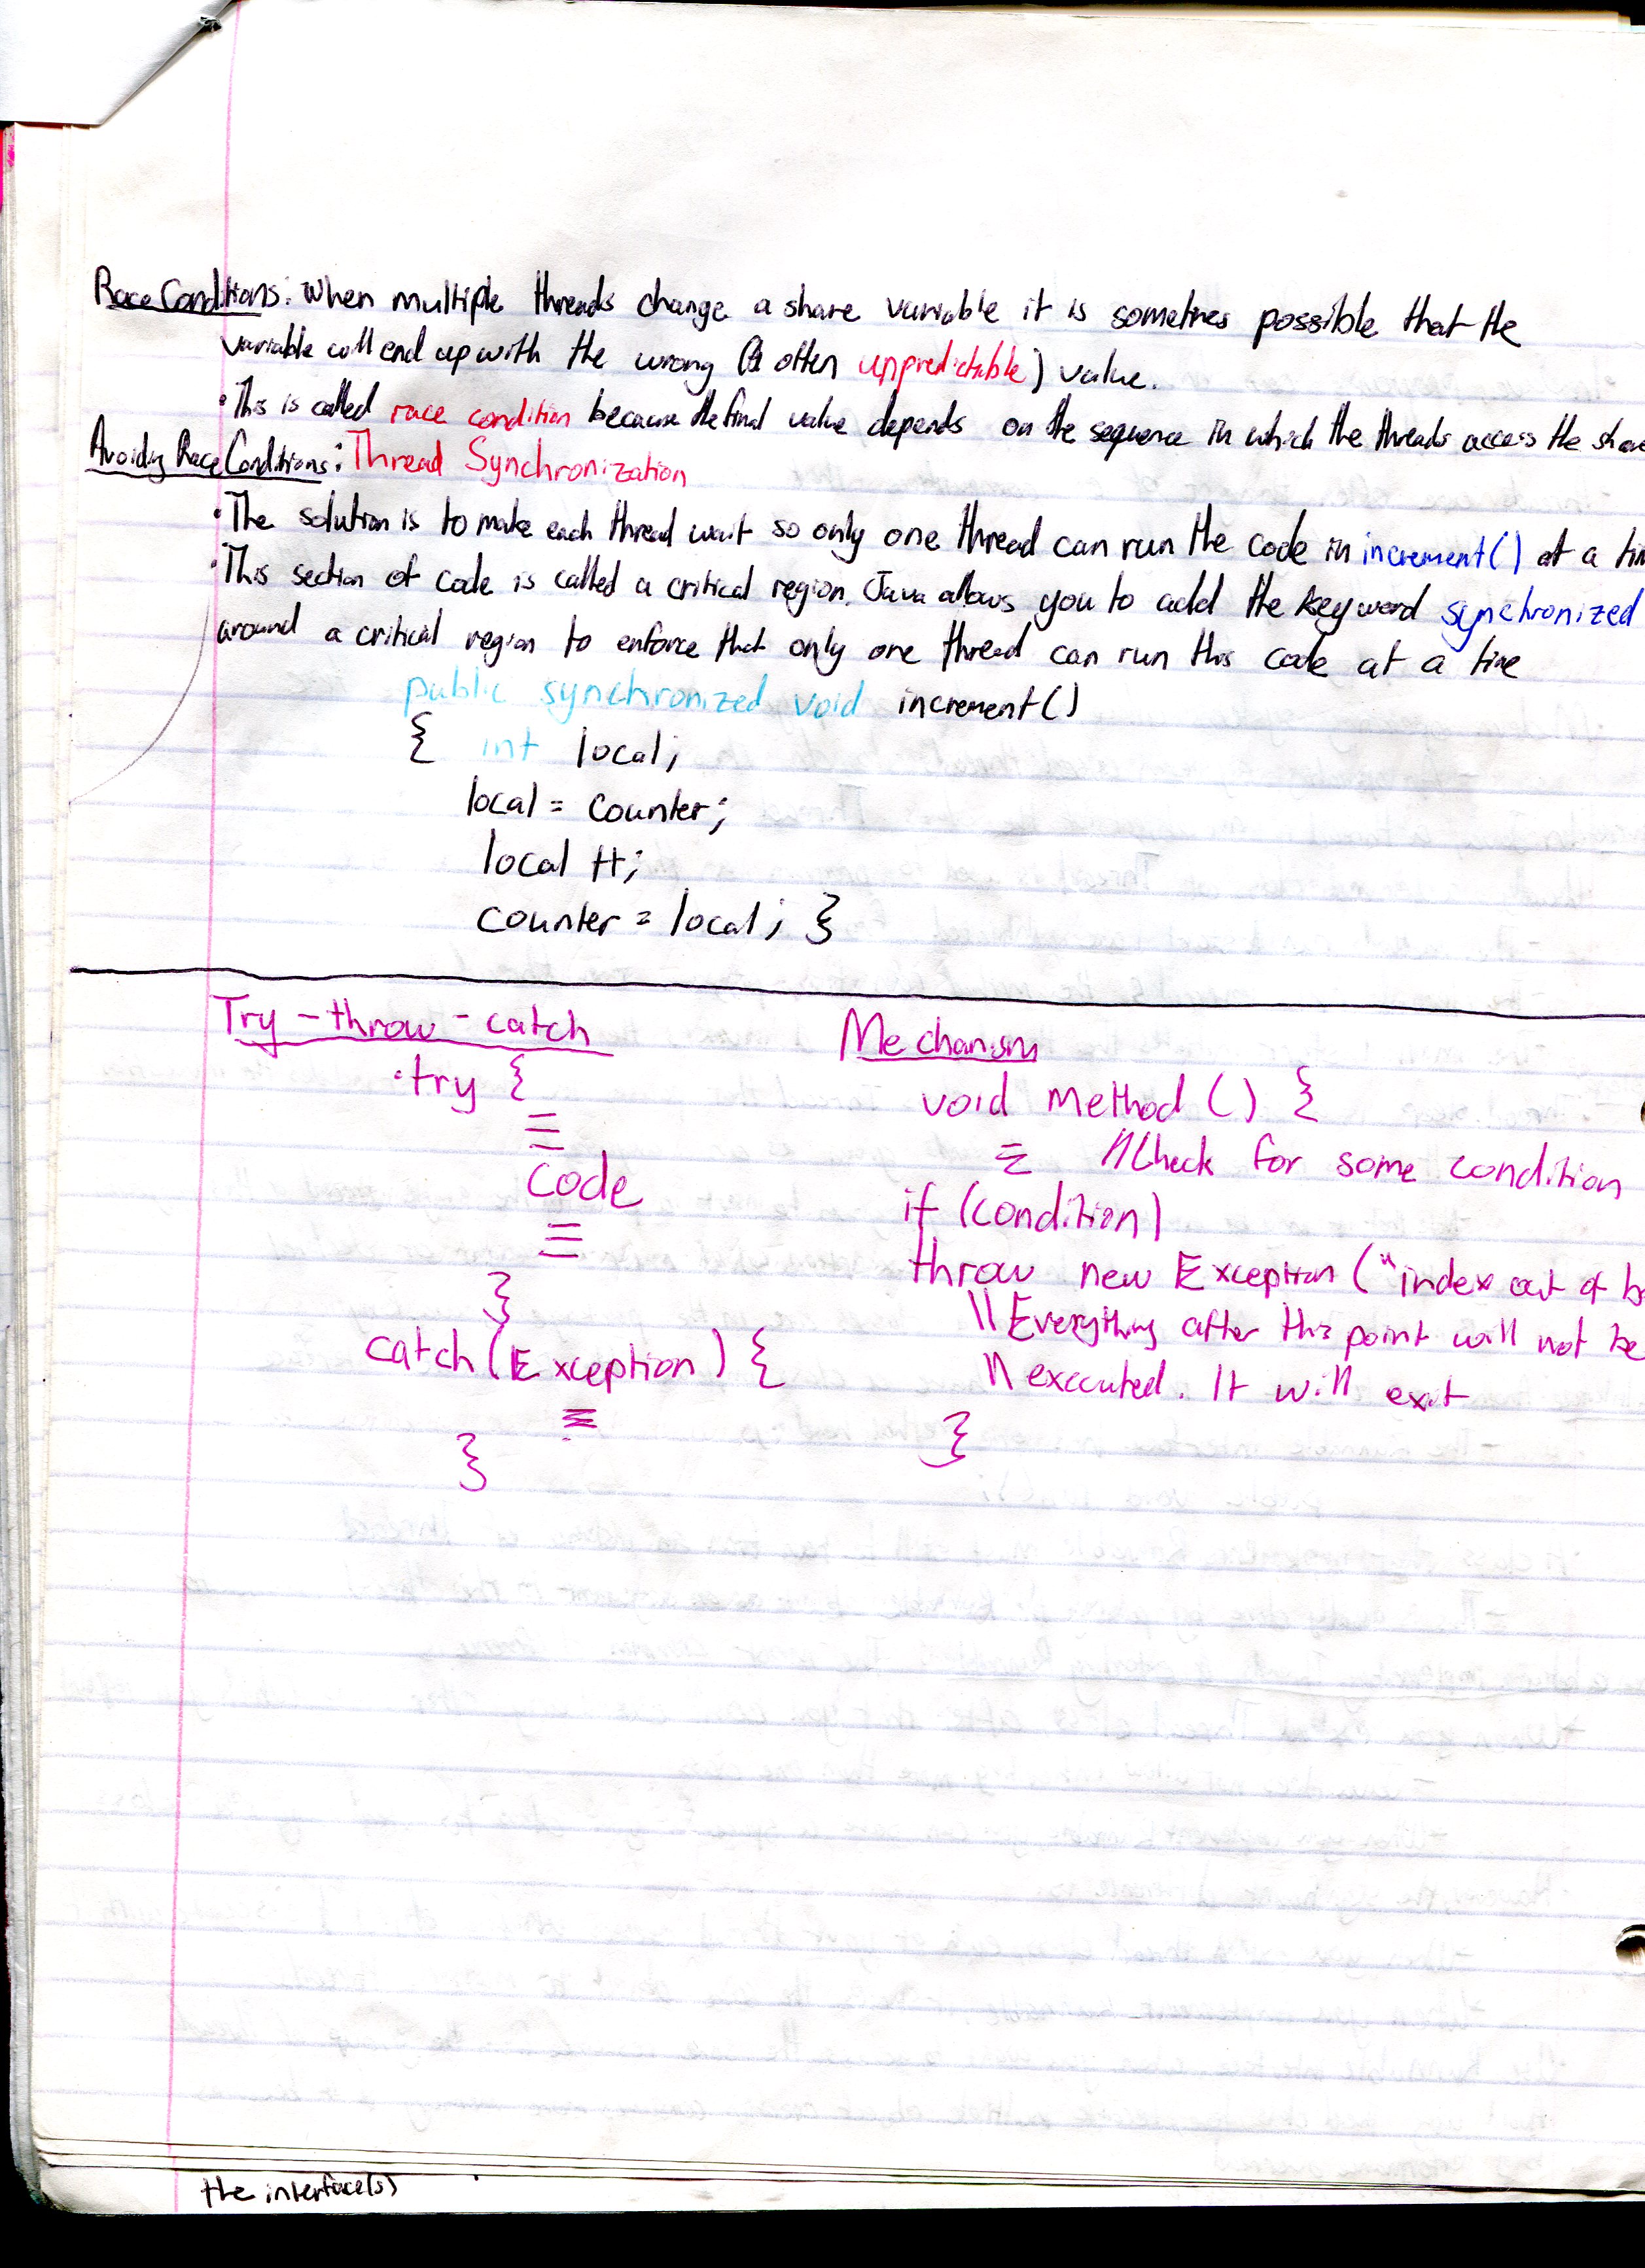 Race Conditions: When multiple threads change a share variable it is sometimes possible that the
variable will end up with the wrong (& often unpredictable) value.
• This is called race condition because the final value depends on the sequence in which the threads access the
Avoiding Race Conditions: Thread Synchronization
• The solution is to make each thread wait so only one thread can run the code in increment() at a
• This section of code is called a critical region. Java allows you to add the keyword synchronized
around a critical region to enforce that only one thread can run this code at a time
public synchronized void increment()
{ int local;
local = counter;
local ++;
counter = local; }
Try - throw - catch
• try {
code
}
catch (Exception) {
}
Mechanism
void method () {
\\Check for some condition
if (condition)
throw new Exception ("index out of
\\Everything after this point will not be
\\executed. It will exit
}
the interface(s)